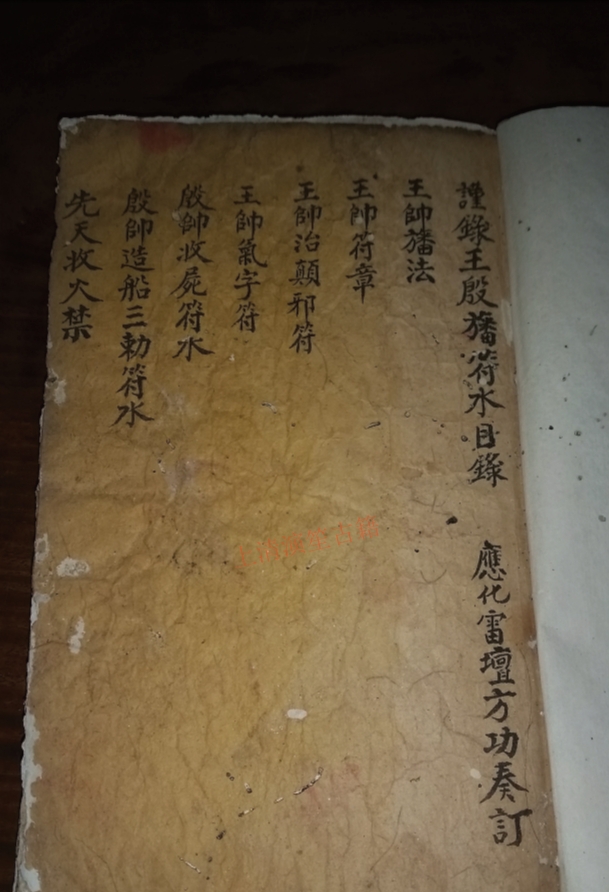 謹錄王殷旛符水目錄
應化雷壇方功奏訂
王帥旛法
王帥符章
王帥治顛邪符
王帥氣字符
殷帥收屍符水
殷帥造船三勅符水
先天收火禁